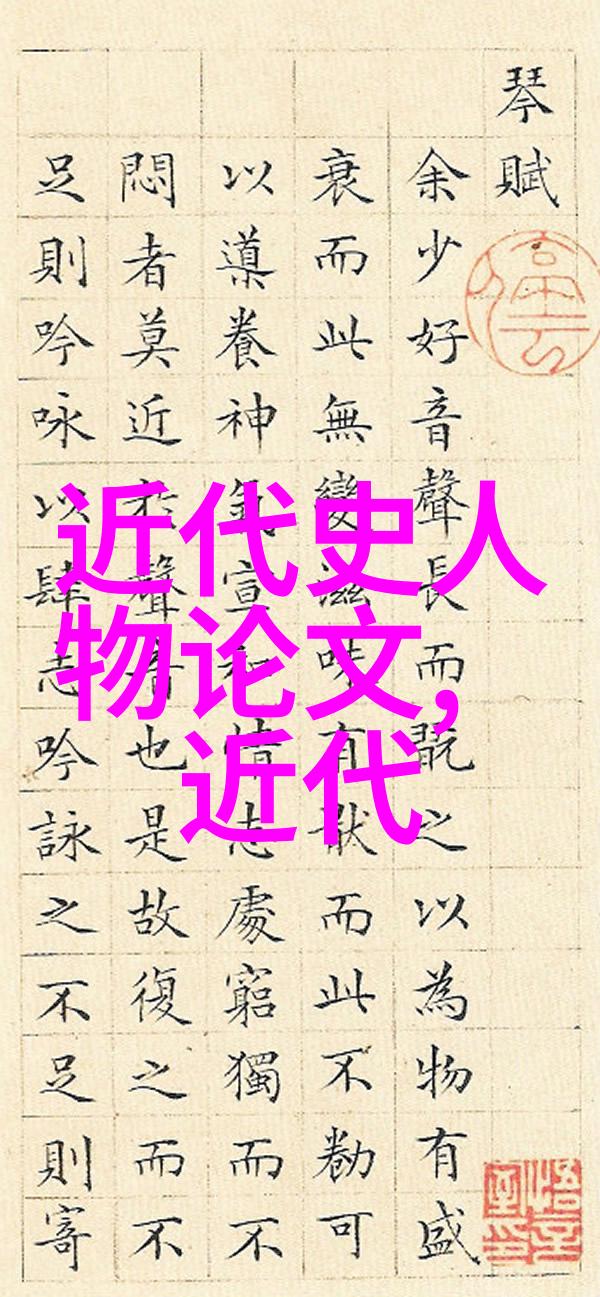 琴賦
余少好音聲長而翫之以為物有盛
衰而此無變滋味有猒而此不勌可
以導養神氣宣和情志處窮獨而不
悶者莫近於聲音也是故復之而不
足則吟咏以肆志吟詠之不足則寄
近代史人
物论文,
近代